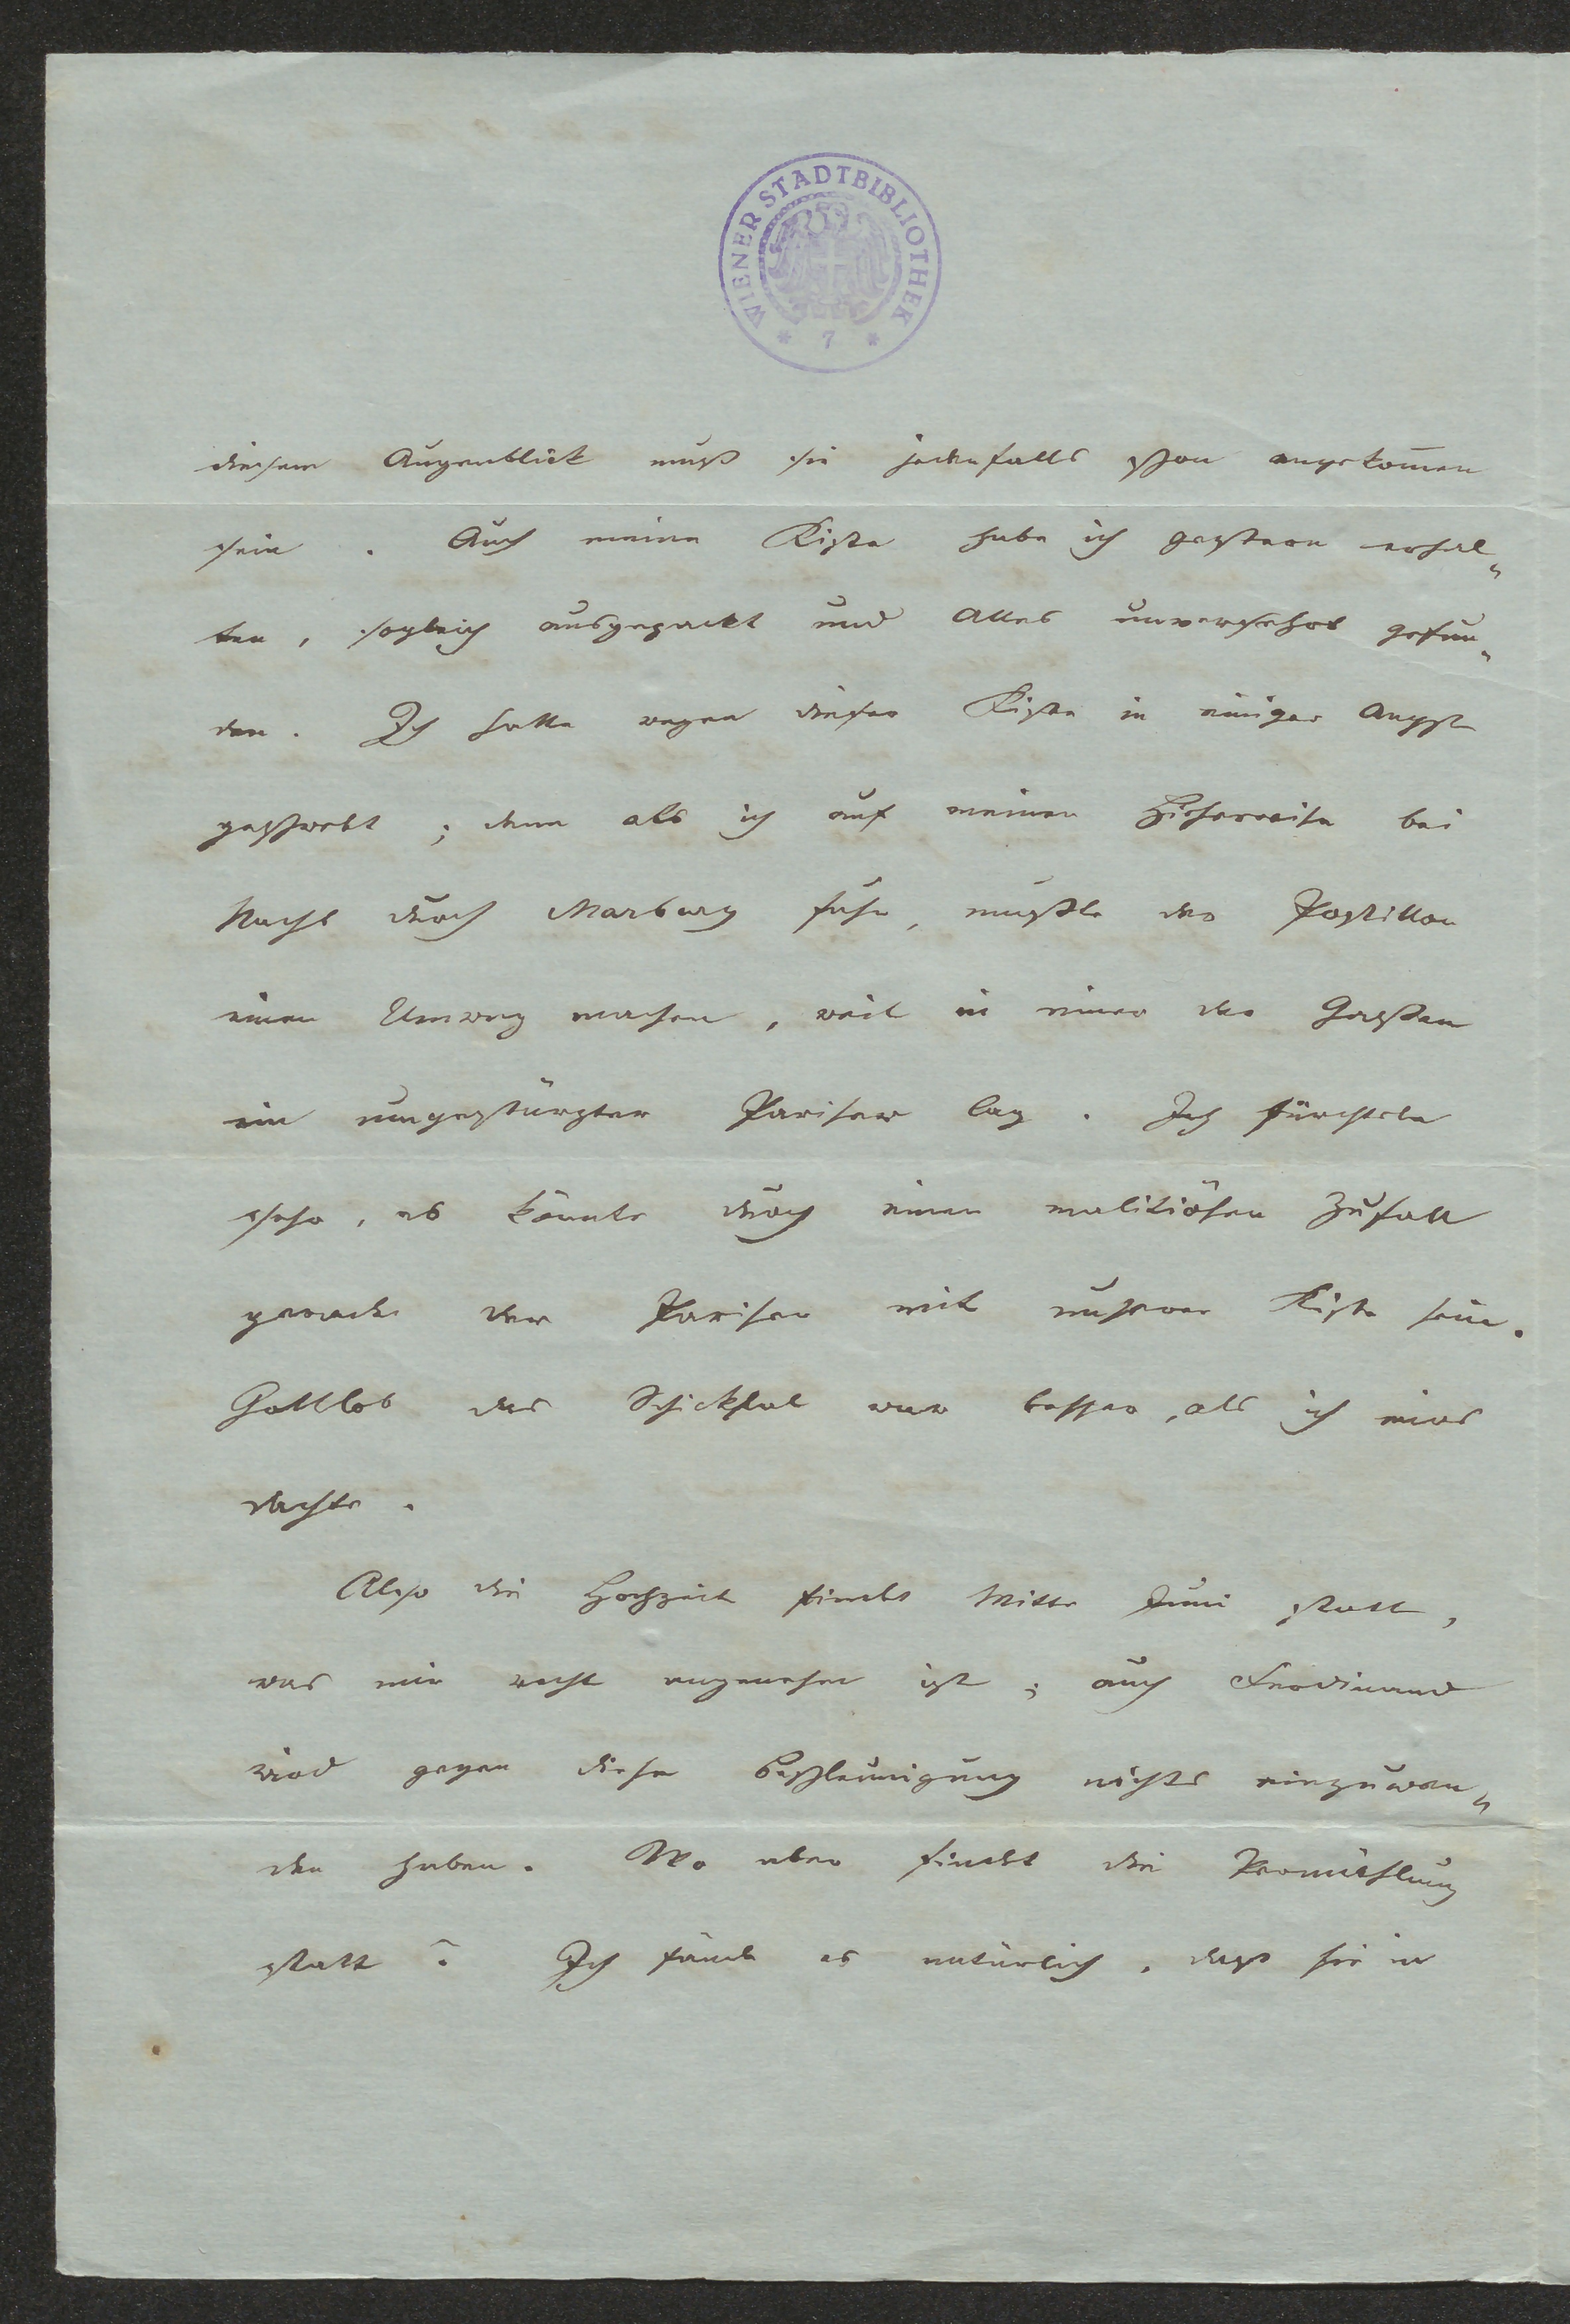 WIENER STADTBIBLIOTHEK
* 7 *
diesem Augenblick muß sie jedenfalls schon angekom̅en
sein. Auch meine Kiste habe ich gestern erhal„
ten, sogleich ausgepackt und Alles unversehrt gefun„
den. Ich hatte wegen dieser Kiste in einiger Angst
geschwebt; denn als ich auf meiner Hieherreise bei
Nacht durch Marburg fuhr, mußte der Postillon
einen Umweg machen, weil in einer der Gassen
ein umgestürzter Pariser lag. Ich fürchtete
sehr, es könnte durch einen malitiösen Zufall
gerade der Pariser mit unserer Kiste sein.
Gottlob das Schicksal war besser, als ich mirs
dachte.
Also die Hochzeit findet Mitte Juni statt,
was mir recht angenehm ist; auch Ferdinand
wird gegen diese Beschleunigung nichts einzuwen„
den haben. Wo aber findet die Vermählung
statt? Ich fände es natürlich, daß sie in